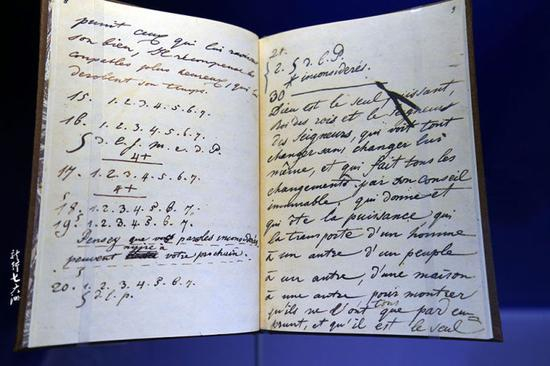 8
punit ceux qui lui
son bien, Il récompense
coupables plus heureux, qui
dérobent son temps.
15. 1. 2. 3. 4. 5. 6. 7.
16. 1. 2. 3. 4. 5. 6. 7.
d. l. f. m. e. d. P.
4+
17. 1. 2. 3. 4. 5. 6. 7.
4+
18. 1. 2. 3. 4. 5. 6. 7.
19. 1. 2. 3. 4. 5. 6. 7.
Pensez paroles inconsidérés
peuvent nuire à votre prochain.
20. 1. 2. 3. 4. 5. 6. 7.
d. l. p.
9
21.
2. d. l. P.
inconsidérés.
30
Dieu est le seul puissant,
roi des rois et le seigneur
des seigneurs, qui voit tout
changer sans changer lui
même, et qui fait tous les
changements par son conseil
immuable; qui donne et
qui ôte la puissance qui
la transporte d'un homme
à un autre d'un peuple
à un autre, d'une maison
à une autre, pour montrer
qu'ils ne l'ont tous que par em-
prunt, et qu'il est le seul